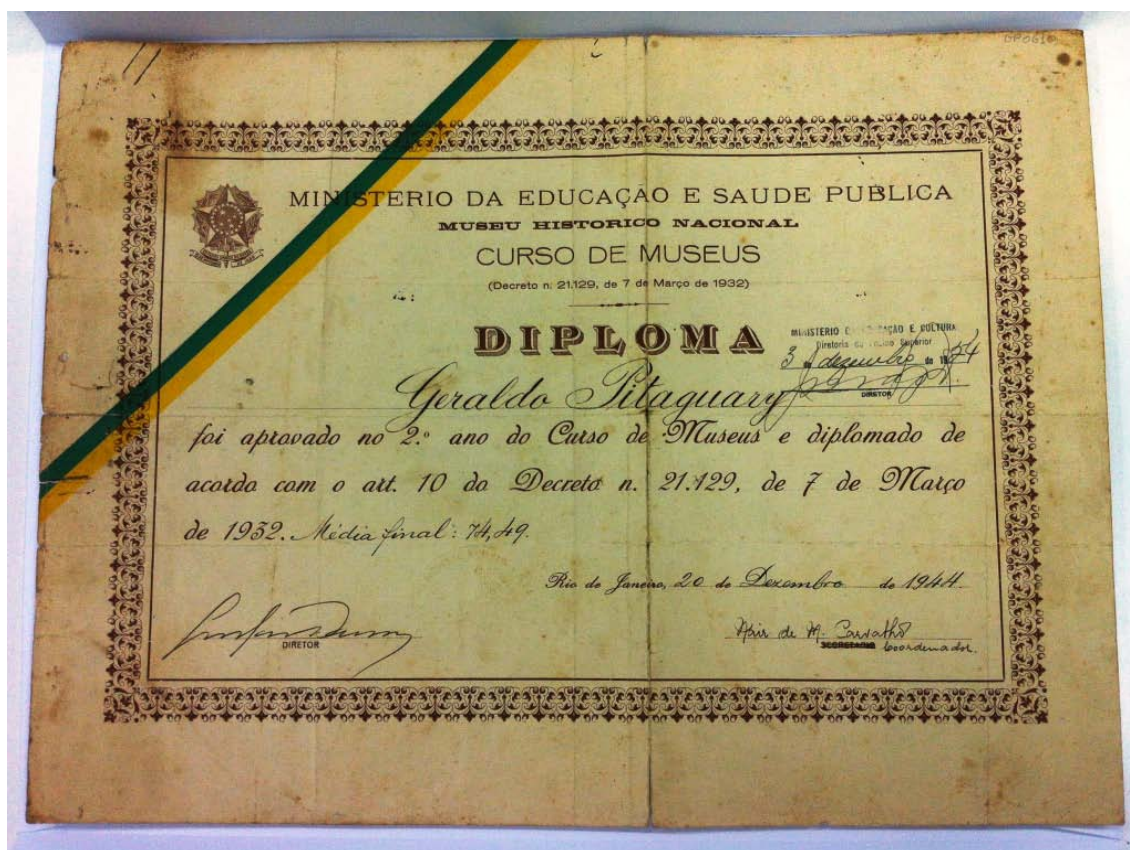 GP0610
MINISTERIO DA EDUCAÇÃO E SAUDE PUBLICA
MUSEU HISTORICO NACIONAL
CURSO DE MUSEUS
(Decreto n. 21.129, de 7 de Março de 1932)
DIPLOMA
MINISTERIO DA EDUCAÇÃO E CULTURA
Diretoria do Ensino Superior
3 dezembro de 19
DIRETOR
Geraldo Pitaguary
foi aprovado no 2.º ano do Curso de Museus e diplomado de
acordo com o art. 10 do Decreto n. 21.129, de 7 de Março
de 1932. Média final: 74,49.
Rio de Janeiro, 20 de Dezembro de 1944
DIRETOR
Nair de M. Carvalho
SECRETARIO Coordenador.